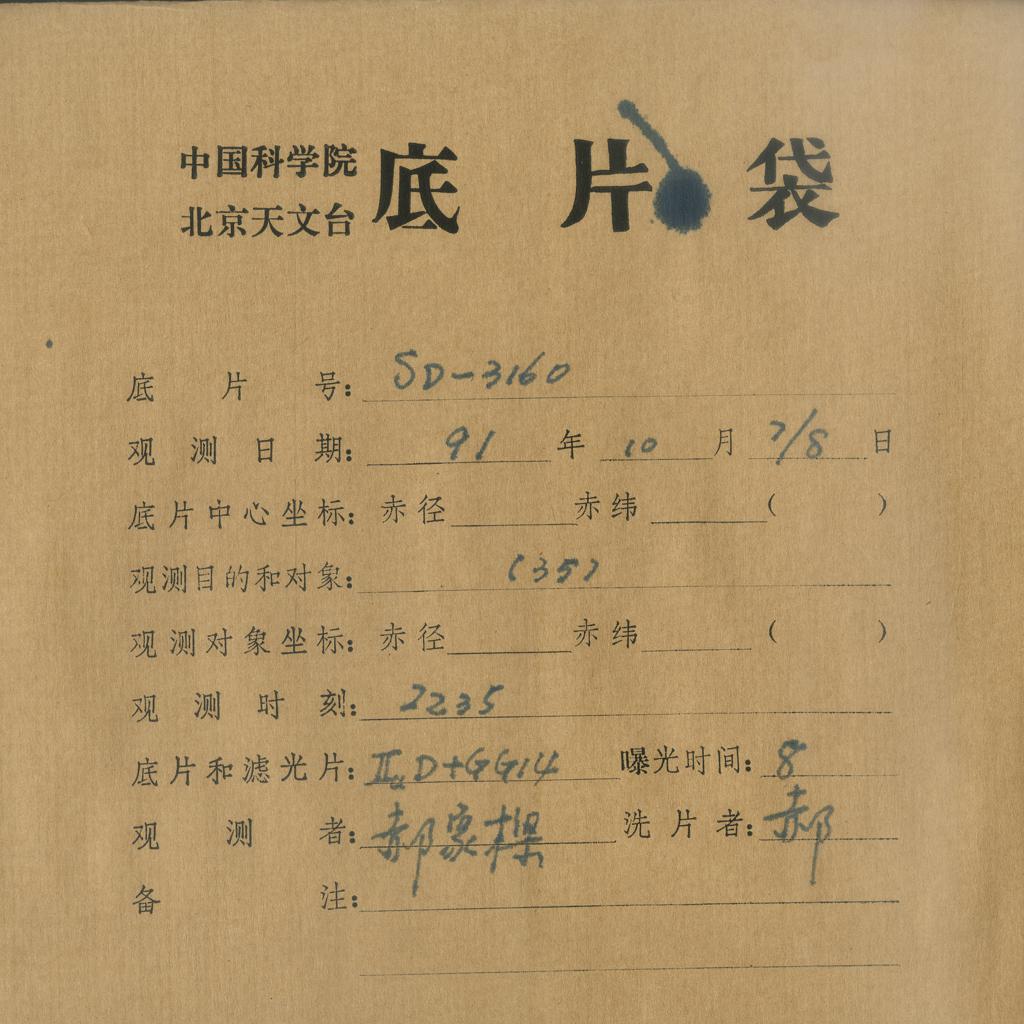 中国科学院
北京天文台
底片袋
底片号: SD-3160
观测日期: 91 年 10 月 7/8 日
底片中心坐标: 赤径 赤纬 ( )
观测目的和对象: (35)
观测对象坐标: 赤径 赤纬 ( )
观测时刻: 2235
底片和滤光片: IIaD+GG14 曝光时间: 8
观测者: 郝象樑 洗片者: 郝
备注: